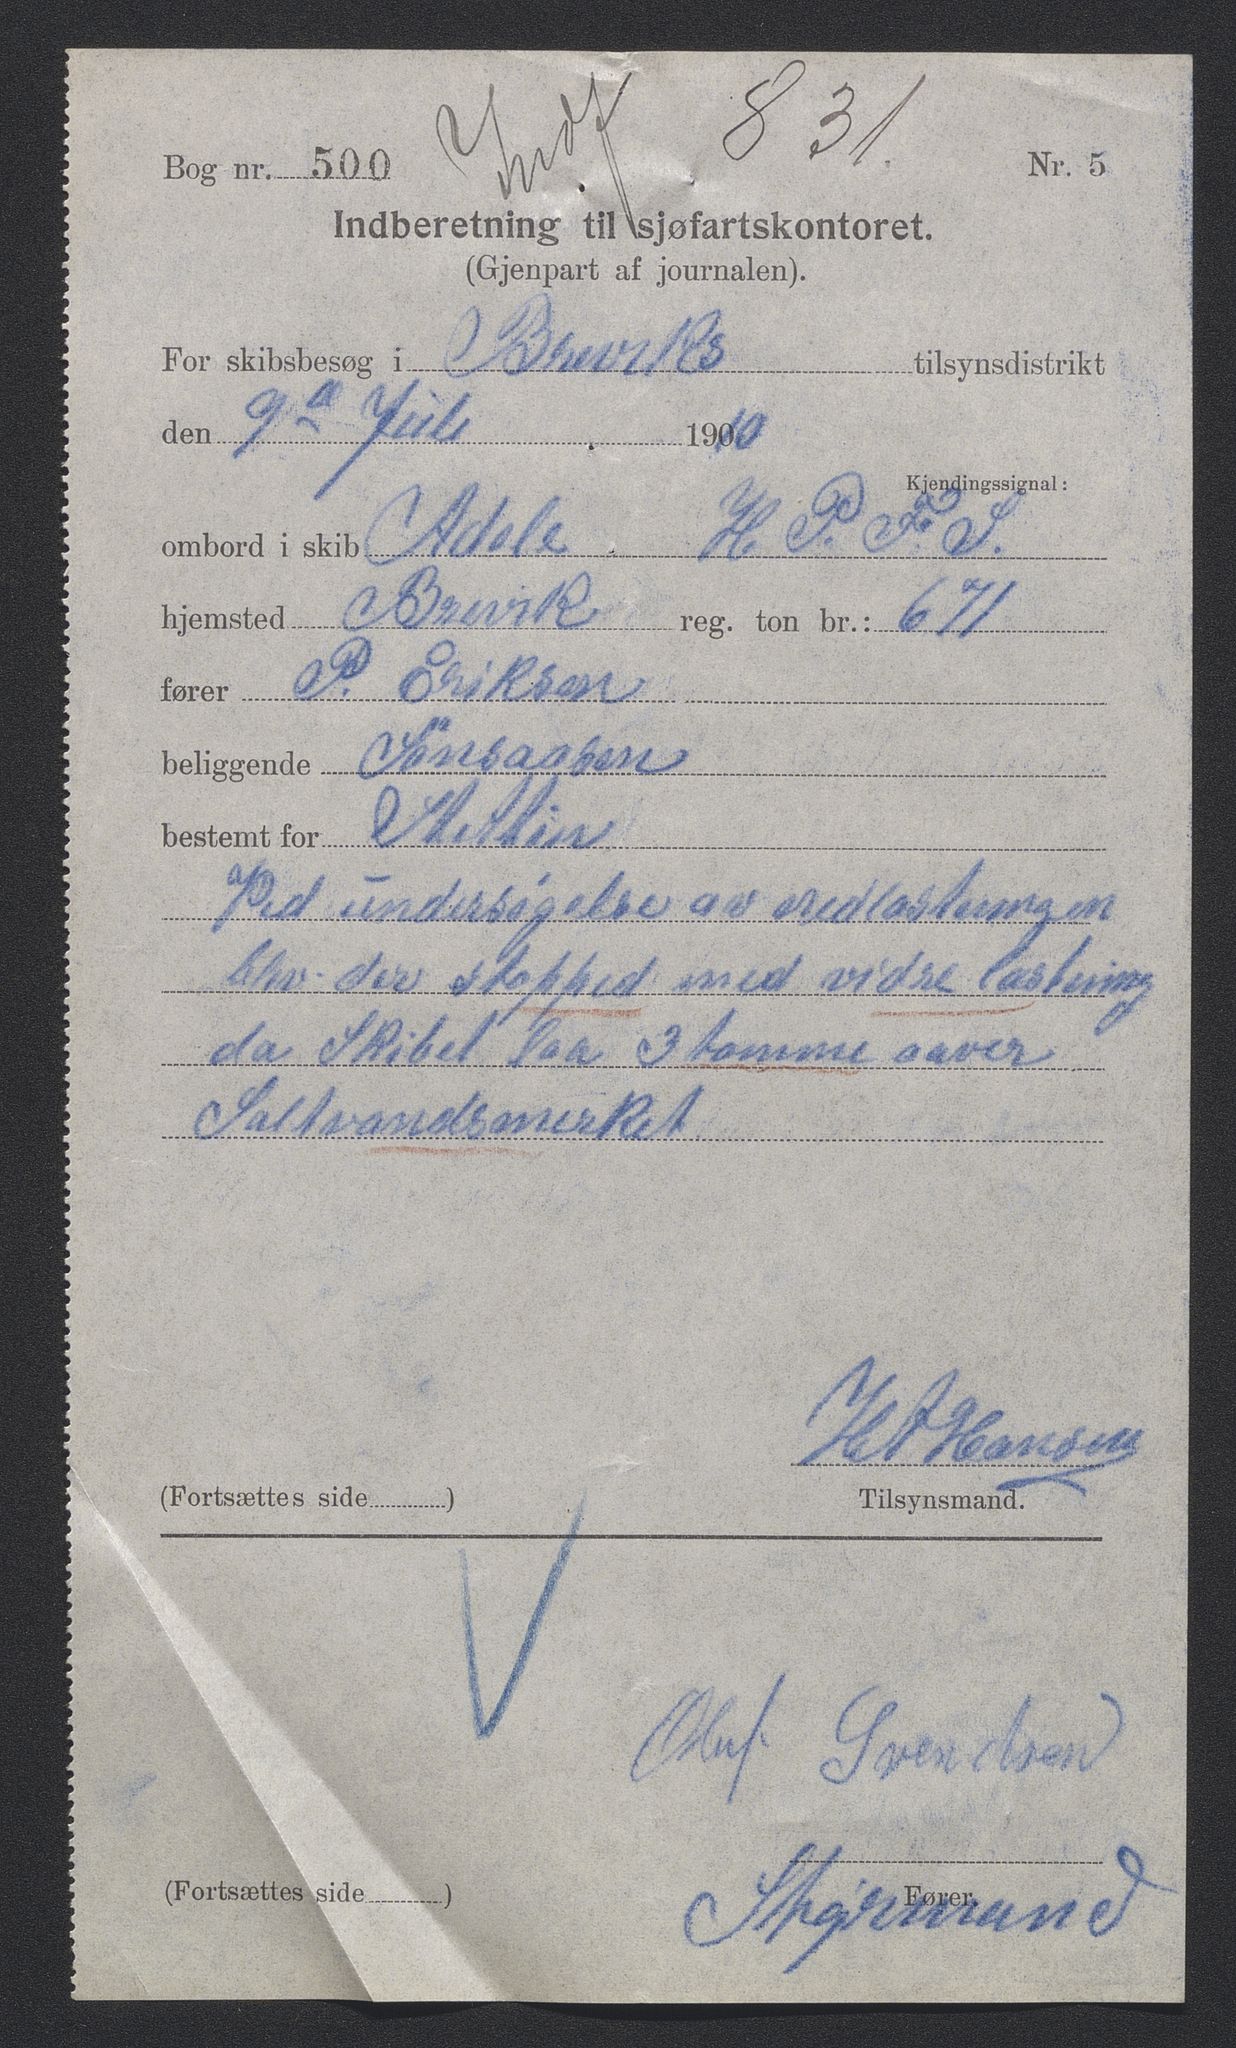 Indf 831.
Bog nr. 500 Nr. 5
Indberetning til sjøfartskontoret.
(Gjenpart af journalen).
For skibsbesøg i Breviks tilsynsdistrikt
den 9d Juli 1910
Kjendingssignal:
ombord i skib Adele H. P. F. S.
hjemsted Brevik reg. ton br.: 671
fører P. Eriksen
beliggende
bestemt for Stettin
Ved undersøgelse av nedlastningen
blev der stopped med vidre lastning
da Skibet laa 3 tomme aaver
Saltvandsmerket
Hansen
(Fortsættes side ) Tilsynsmand.
Oluf Svendsen
(Fortsættes side ) Fører.
Styrmand